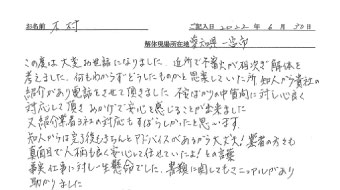 お名前 大村 ご記入日 2022年 6月 30日
解体現場所在地 愛知県一宮市
この度は大変お世話になりました。近所で不審火が相次ぎ解体を
考えました。何もわからずどうしたものかと思案していた所知人から貴社の
紹介があり電話をさせて頂きました。不安ばかりの中質問に対し心良く
対応して頂き おかげで安心を感じることが出来ました
又紹介業者3社の対応もすばらしかったと思います。
知人からは完了後もきちんとアドバイスがあるから大丈夫!業者の方も
真面目で人柄も良く安心して任せていたよ!との言葉
事実仕事に対し一生懸命でした。書類に関してもマニュアルがあり
助かりました